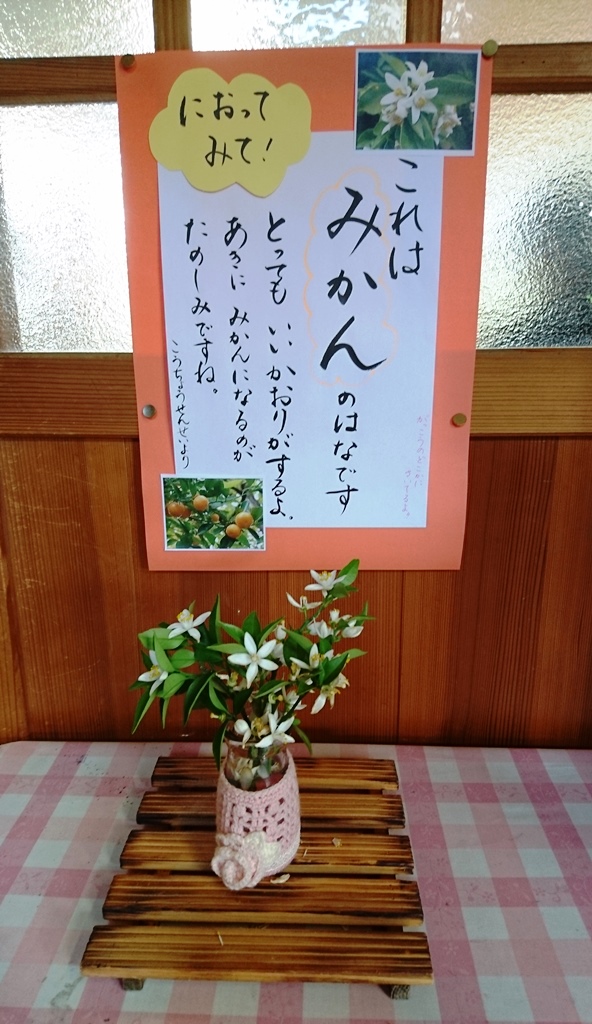 におって
みて!
これは
みかんのはなです
とっても いいかおりがするよ。
あきに みかんになるのが
たのしみですね。
こうちょうせんせいより
がっこうのどこかに
さいてるよ。